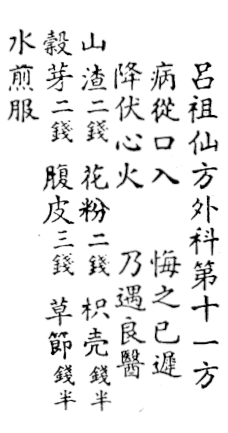 呂祖仙方外科第十一方
病從口入 悔之已遲
降伏心火 乃遇良醫
山渣二錢 花粉二錢 枳壳錢半
穀芽二錢 腹皮三錢 草節錢半
水煎服